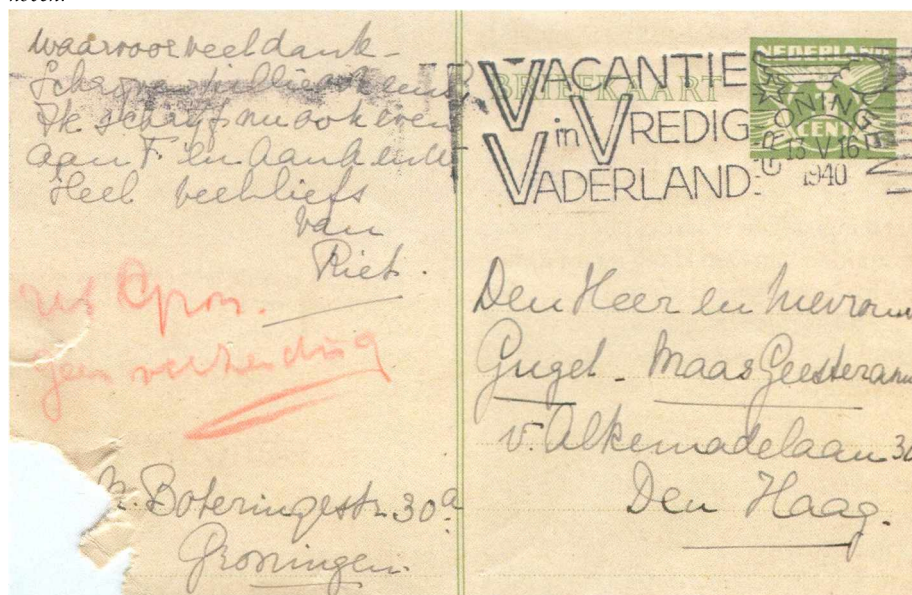 waarvoor veel dank -
Ik schrijf nu ook even
aan F. en
Heel veel liefs
van
Riet.
geen verbinding
Boteringestr. 30a
Groningen.
BRIEFKAART
NEDERLAND
CENT
VACANTIE
in VREDIG
VADERLAND.
GRONINGEN
13 V 16
1940
Den Heer en Mevrouw
Gugel - Maas Geesteranus
v. Alkemadelaan 30
Den Haag.